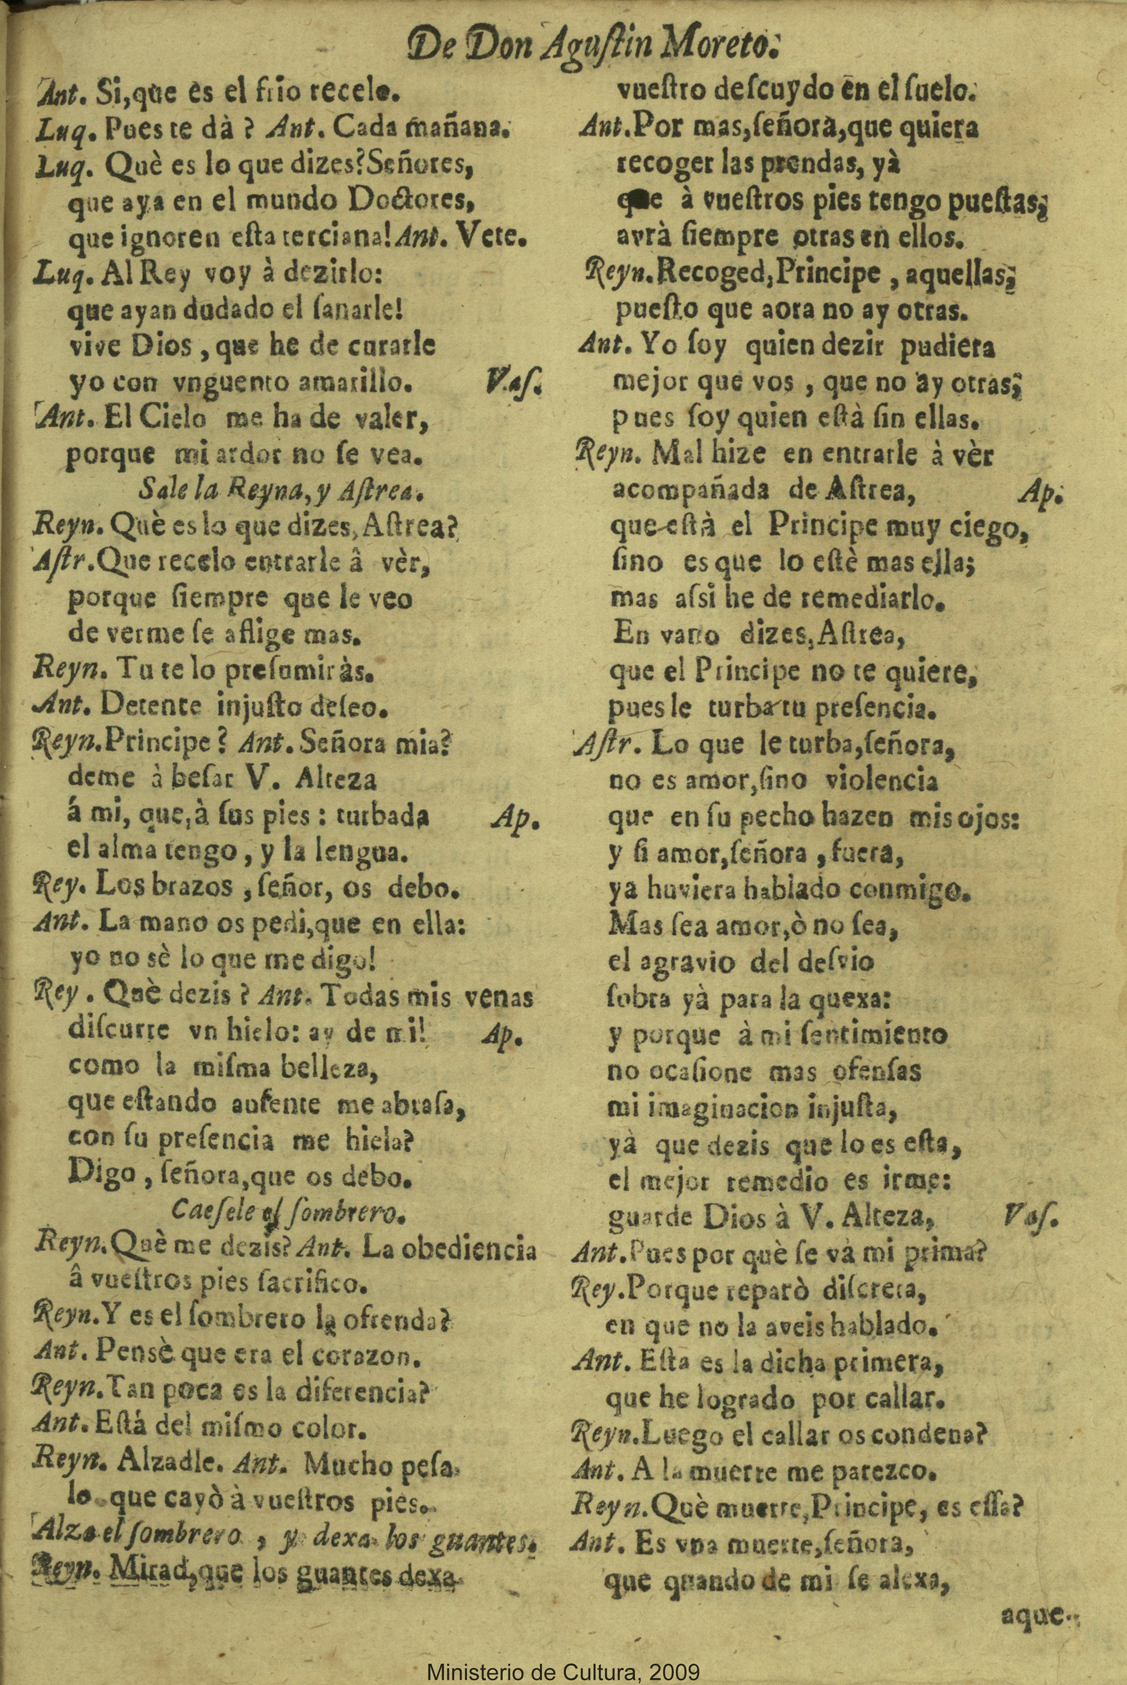 De Don Agustin Moreto.
Ant. Si, que es el frio recelo.
Luq. Pues te dà? Ant. Cada mañana.
Luq. Què es lo que dizes? Señores,
que aya en el mundo Doctores,
que ignoren esta terciana! Ant. Vete.
Luq. Al Rey voy à dezirlo:
que ayan dudado el sanarle!
vive Dios, que he de curarle
yo con vnguento amarillo. Vas.
Ant. El Cielo me ha de valer,
porque mi ardor no se vea.
Sale la Reyna, y Astrea.
Reyn. Què es lo que dizes, Astrea?
Astr. Que recelo entrarle â vèr,
porque siempre que le veo
de verme se aflige mas.
Reyn. Tu te lo presumiràs.
Ant. Detente injusto deseo.
Reyn. Principe? Ant. Señora mia?
deme à besar V. Alteza
á mi, que, à sus pies: turbada Ap.
el alma tengo, y la lengua.
Rey. Los brazos, señor, os debo.
Ant. La mano os pedi, que en ella:
yo no sè lo que me digo!
Rey. Què dezis? Ant. Todas mis venas
discurre vn hielo: ay de mi! Ap.
como la misma belleza,
que estando ausente me abrasa,
con su presencia me hiela?
Digo, señora, que os debo.
Caesele el sombrero.
Reyn. Què me dezis? Ant. La obediencia
â vuestros pies sacrifico.
Reyn. Y es el sombrero la ofrenda?
Ant. Pensè que era el corazon.
Reyn. Tan poca es la diferencia?
Ant. Està del mismo color.
Reyn. Alzadle. Ant. Mucho pesa
lo que cayò à vuestros pies.
Alza el sombrero, y dexa los guantes.
Reyn. Mirad, que los guantes dexa
vuestro descuydo en el suelo.
Ant. Por mas, señora, que quiera
recoger las prendas, yà
que à vuestros pies tengo puestas;
avrà siempre otras en ellos.
Reyn. Recoged, Principe, aquellas;
puesto que aora no ay otras.
Ant. Yo soy quien dezir pudiera
mejor que vos, que no ay otras;
pues soy quien està sin ellas.
Reyn. Mal hize en entrarle à vèr
acompañada de Astrea, Ap.
que està el Principe muy ciego,
sino es que lo estè mas ella;
mas assi he de remediarlo.
En vano dizes, Astrea,
que el Principe no te quiere,
pues le turba tu presencia.
Astr. Lo que le turba, señora,
no es amor, sino violencia
que en su pecho hazen mis ojos:
y si amor, señora, fuera,
ya huviera hablado conmigo.
Mas sea amor, ò no sea,
el agravio del desvio
sobra yà para la quexa:
y porque à mi sentimiento
no ocasione mas ofensas
mi imaginacion injusta,
yà que dezis que lo es esta,
el mejor remedio es irme:
guarde Dios à V. Alteza, Vas.
Ant. Pues por què se và mi prima?
Rey. Porque reparò discreta,
en que no la aveis hablado.
Ant. Esta es la dicha primera,
que he logrado por callar.
Reyn. Luego el callar os condena?
Ant. A la muerte me parezco.
Reyn. Què muerte, Principe, es essa?
Ant. Es vna muerte, señora,
que quando de mi se alexa,
aque-
Ministerio de Cultura, 2009